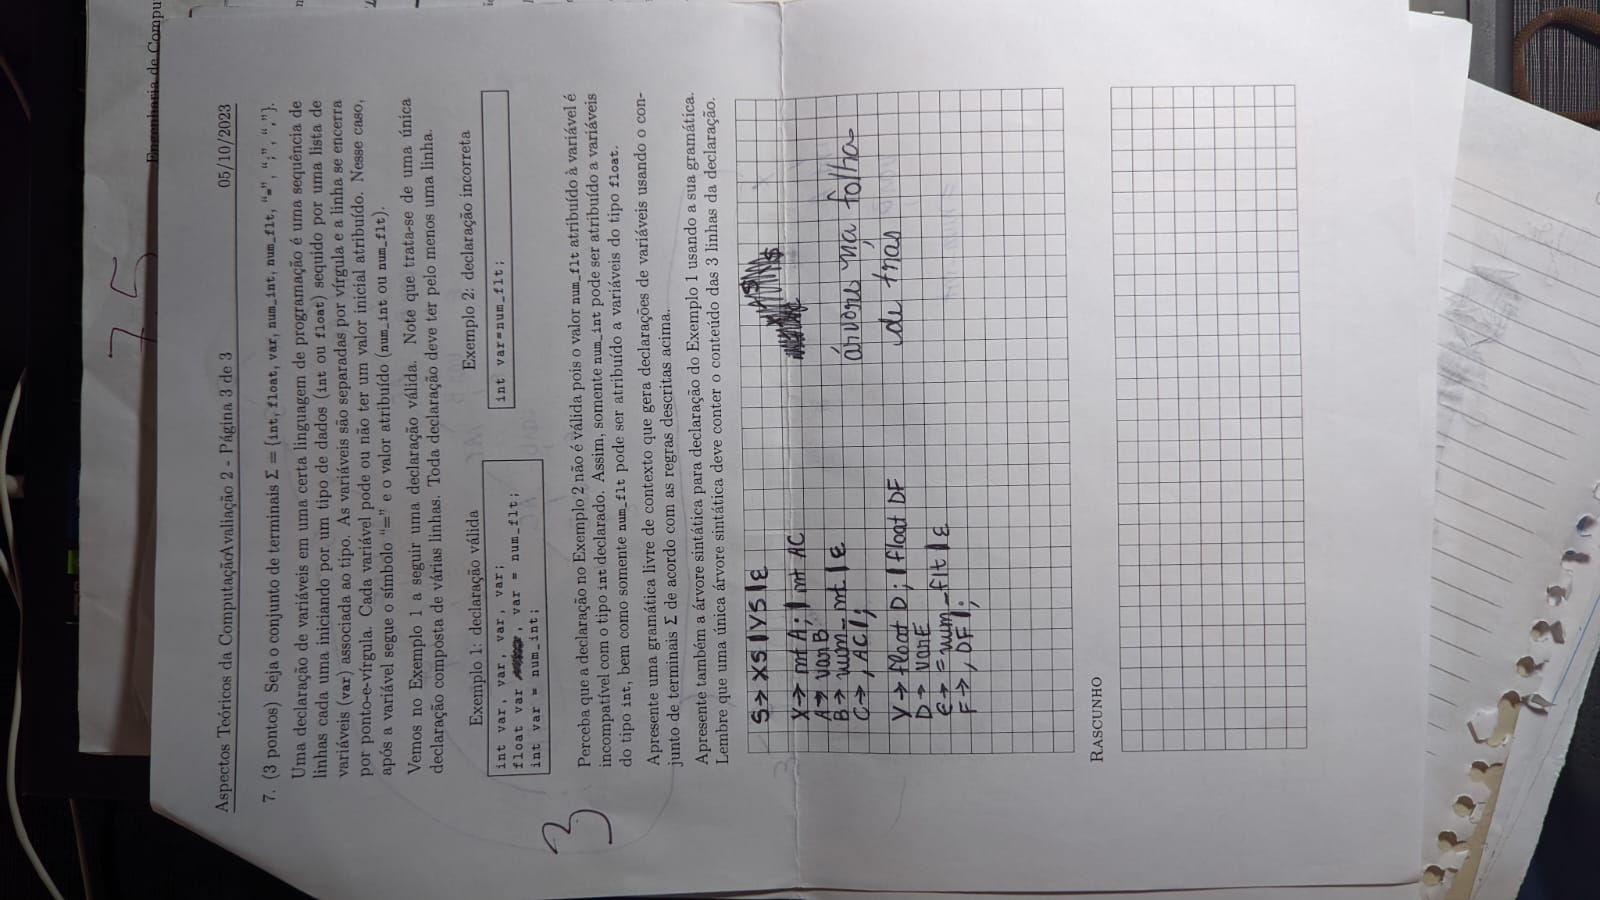 Engenharia de Compu
7.5
Aspectos Teóricos da ComputaçãoAvaliação 2 - Página 3 de 3 05/10/2023
7. (3 pontos) Seja o conjunto de terminais Σ = {int, float, var, num_int, num_flt, "=", ";", ","}.
Uma declaração de variáveis em uma certa linguagem de programação é uma sequência de
linhas cada uma iniciando por um tipo de dados (int ou float) sequido por uma lista de
variáveis (var) associada ao tipo. As variáveis são separadas por vírgula e a linha se encerra
por ponto-e-vírgula. Cada variável pode ou não ter um valor inicial atribuído. Nesse caso,
após a variável segue o símbolo "=" e o valor atribuído (num_int ou num_flt).
Vemos no Exemplo 1 a seguir uma declaração válida. Note que trata-se de uma única
declaração composta de várias linhas. Toda declaração deve ter pelo menos uma linha.
Exemplo 1: declaração válida
int var, var, var, var;
float var , var = num_flt;
int var = num_int;
Exemplo 2: declaração incorreta
int var=num_flt;
3
Perceba que a declaração no Exemplo 2 não é válida pois o valor num_flt atribuído à variável é
incompatível com o tipo int declarado. Assim, somente num_int pode ser atribuído a variáveis
do tipo int, bem como somente num_flt pode ser atribuído a variáveis do tipo float.
Apresente uma gramática livre de contexto que gera declarações de variáveis usando o con-
junto de terminais Σ de acordo com as regras descritas acima.
Apresente também a árvore sintática para declaração do Exemplo 1 usando a sua gramática.
Lembre que uma única árvore sintática deve conter o conteúdo das 3 linhas da declaração.
S→XS|YS|ε
X→ int A;| int AC
A→ varB
B→ =num_int|ε
C→ ,AC|;
Y→ float D;|float DF
D→ varE
E→ =num_flt|ε
F→, DF|;
árvores na folha
de trás
RASCUNHO